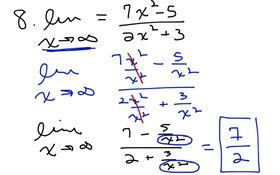 8. lim x→∞ = (7x² - 5)/(2x² + 3)
lim x→∞ (7x²/x² - 5/x²)/(2x²/x² + 3/x²)
lim x→∞ (7 - 5/x²)/(2 + 3/x²) = 7/2